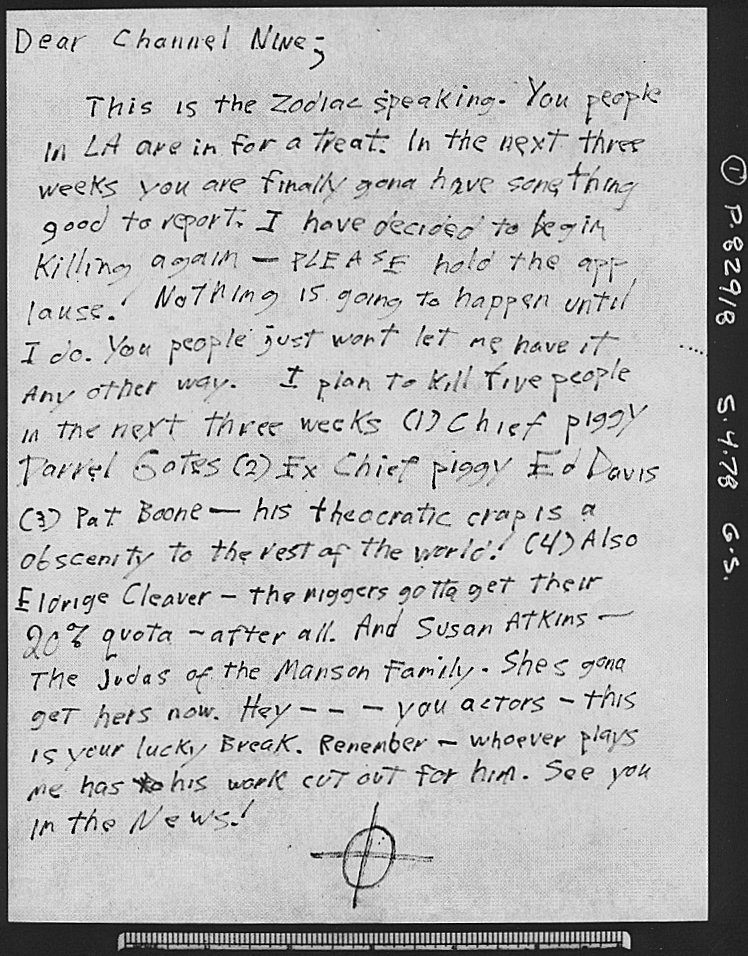 Dear Channel Nine;
This is the Zodiac speaking. You people
in LA are in for a treat. In the next three
weeks you are finally gona have something
good to report. I have decided to begin
killing again — PLEASE hold the app
lause! Nothing is going to happen until
I do. You people just wont let me have it
any other way. I plan to kill five people
in the next three weeks (1) Chief piggy
Darrel Gates (2) Ex Chief piggy Ed Davis
(3) Pat Boone — his theocratic crap is a
obscenity to the rest of the world! (4) Also
Eldrige Cleaver — the niggers gotta get their
20% quota — after all. And Susan Atkins —
The Judas of the Manson Family. Shes gona
get hers now. Hey — — — you actors — this
is your lucky Break. Remember — whoever plays
me has his work cut out for him. See you
in the News!
① P.82918 5.4.78 G.S.